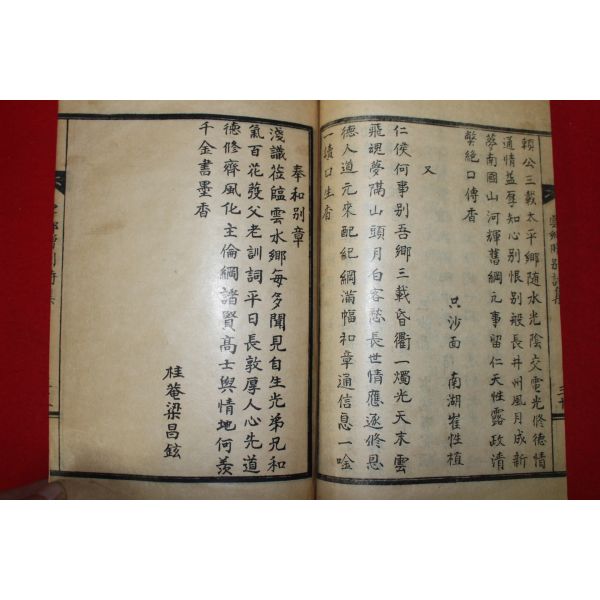 賴公三載太平鄉隨水光陰交電光修德情
通情益厚知心別恨別般長井州風月成新
夢南國山河輝舊綱元事留仁天性露政清
弊絶口傳香
只沙面 南湖崔性植
又
仁侯何事別吾鄉三載昏衢一燭光天末雲
飛魂夢隔山頭月白客愁長世情應逐修恩
德人道元來配紀綱滿幅和章通信息一唫
一讀口生香
奉和別章
淺識莅臨雲水鄉每多聞見自生光弟兄和
氣百花發父老訓詞平日長敦厚人心先道
德修齊風化主倫綱諸賢高士輿情地何羨
千金書墨香
桂菴梁昌鉉